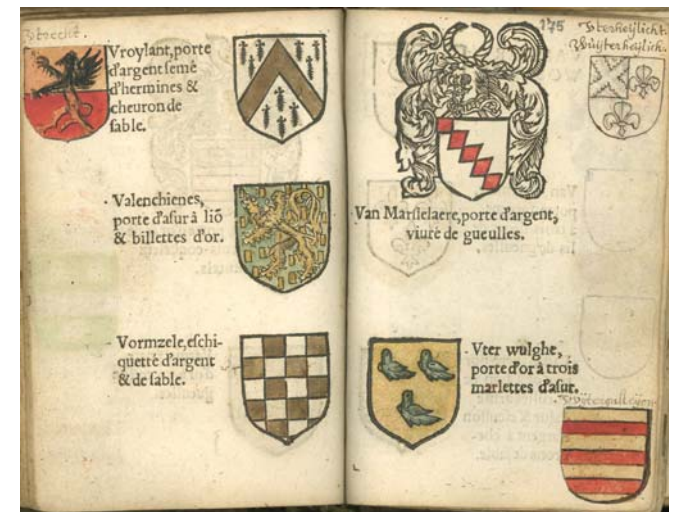 Vroylant, porte
d'argent semé
d'hermines &
cheuron de
sable.
Valenchienes,
porte d'asur à liō
& billettes d'or.
Vormzele, eschi-
quetté d'argent
& de sable.
175
Van Marslelaere, porte d'argent,
viuré de gueulles.
Vter wulghe,
porte d'or à trois
marlettes d'asur.